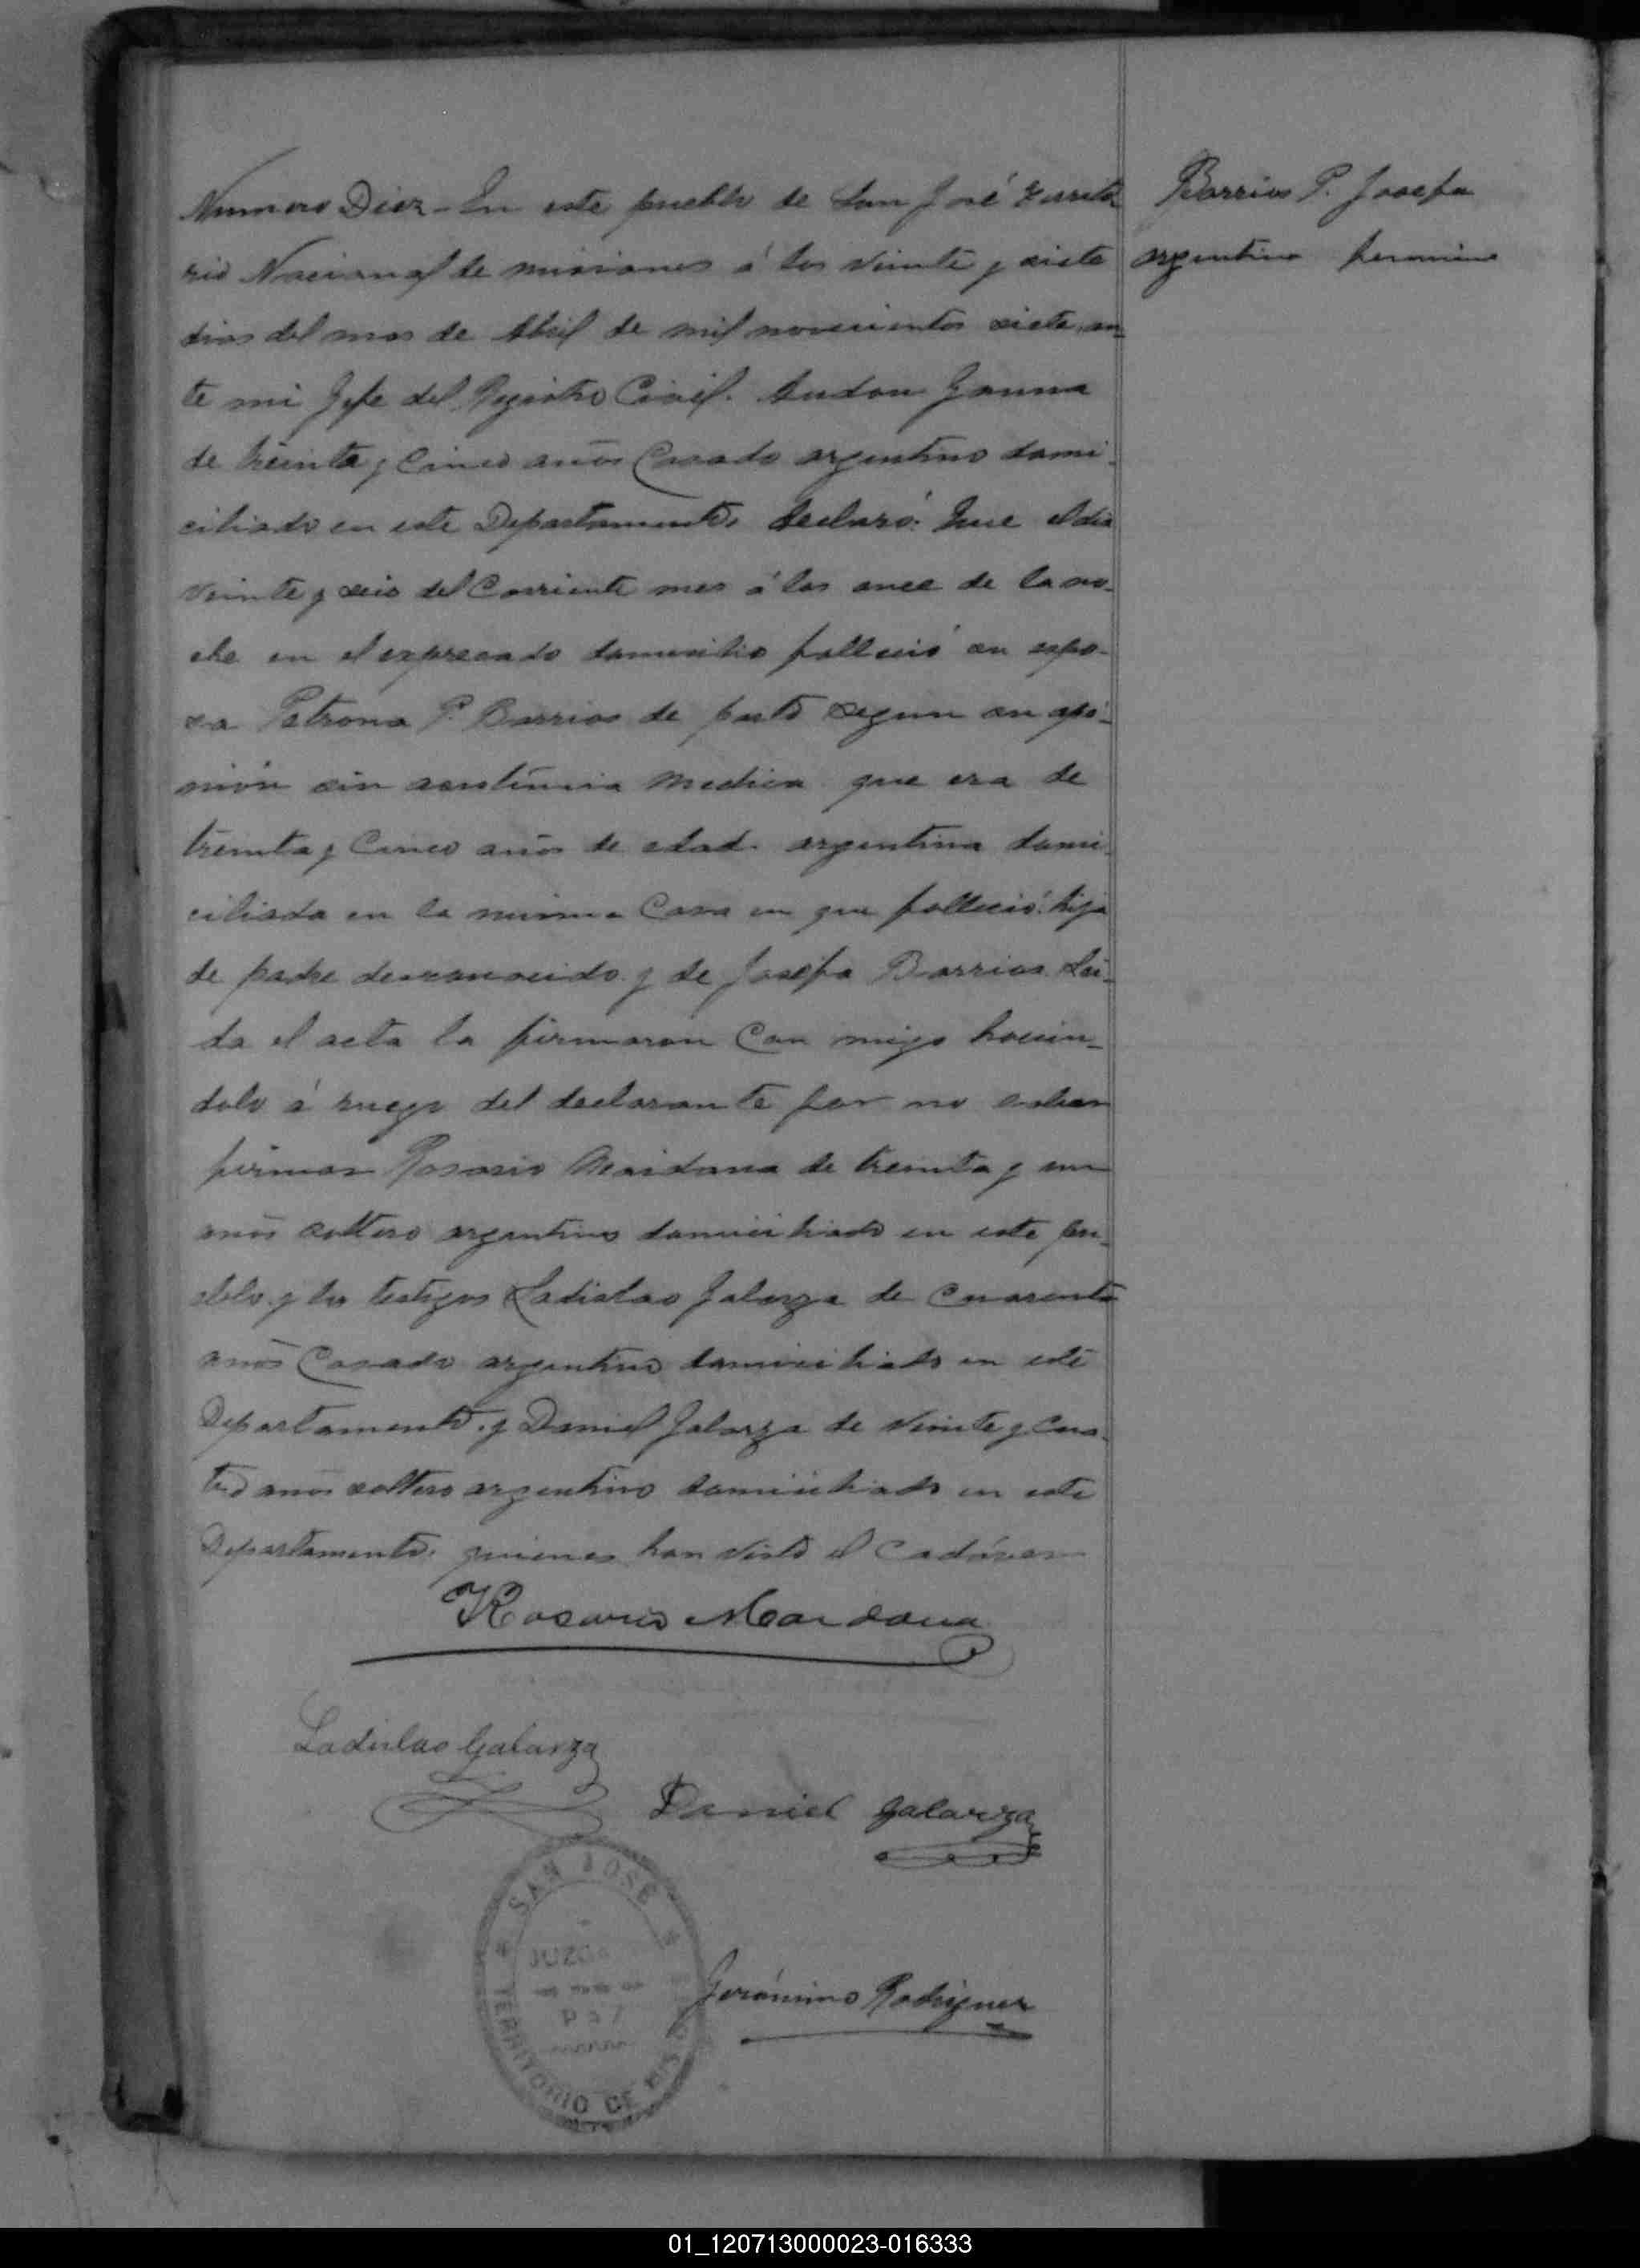 Numero Diez - En este pueblo de San José Territo
rio Nacional de misiones á los veinte y siete
dias del mes de Abril de mil novecientos siete, an-
te mi Jefe del Registro Civil. Audon Gauna
de treinta y Cinco años Casado argentino domi-
ciliado en este Departamento, declaró: Que el dia
veinte y seis del Corriente mes á las once de la no-
che en el expresado domicilio falleció su espo-
sa Petrona P. Barrios de parto segun su opi-
nión sin asistencia medica que era de
treinta y Cinco años de edad argentina domi-
ciliada en la misma Casa en que falleció: hija
de padre desconocido y de Josefa Barrios. Lei-
da el acta la firmaron Con migo hacien-
dolo á ruego del declarante por no saber
firmar Rosario Maidana de treinta y un
años soltero argentino domiciliado en este pu-
eblo y los testigos Ladislao Galarza de Cuarenta
años Casado argentino domiciliado en este
Departamento. y Daniel Galarza de veinte y Cua-
tro años soltero argentino domiciliado en este
Departamento, quienes han visto el Cadáver
Rosario Maidana
Ladislao Galarza
Daniel Galarza
Gerónimo Rodriguez
SAN JOSÉ
TERRITORIO DE MIS
Barrios P. Josefa
argentina femenino
01_120713000023-016333